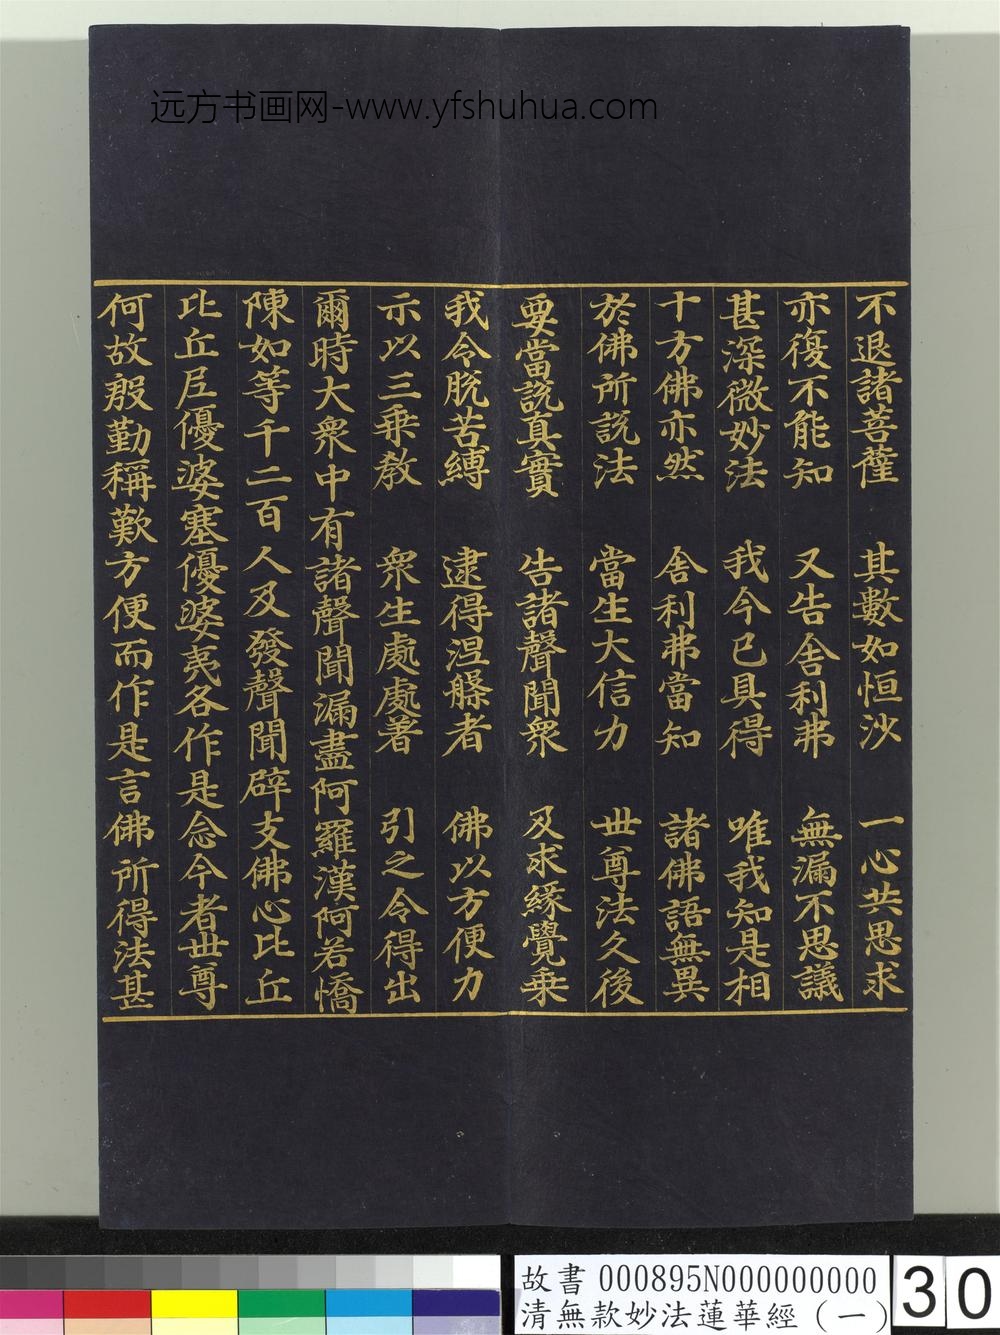 远方书画网-www.yfshuhua.com
不退諸菩薩 其數如恒沙 一心共思求
亦復不能知 又告舍利弗 無漏不思議
甚深微妙法 我今已具得 唯我知是相
十方佛亦然 舍利弗當知 諸佛語無異
於佛所說法 當生大信力 世尊法久後
要當說真實 告諸聲聞衆 及求緣覺乗
我令脫苦縛 逮得涅槃者 佛以方便力
示以三乗教 衆生處處著 引之令得出
爾時大衆中有諸聲聞漏盡阿羅漢阿若憍
陳如等千二百人及發聲聞辟支佛心比丘
比丘尼優婆塞優婆夷各作是念今者世尊
何故殷勤稱歎方便而作是言佛所得法甚
故書 000895N000000000
清無款妙法蓮華經(一)
30